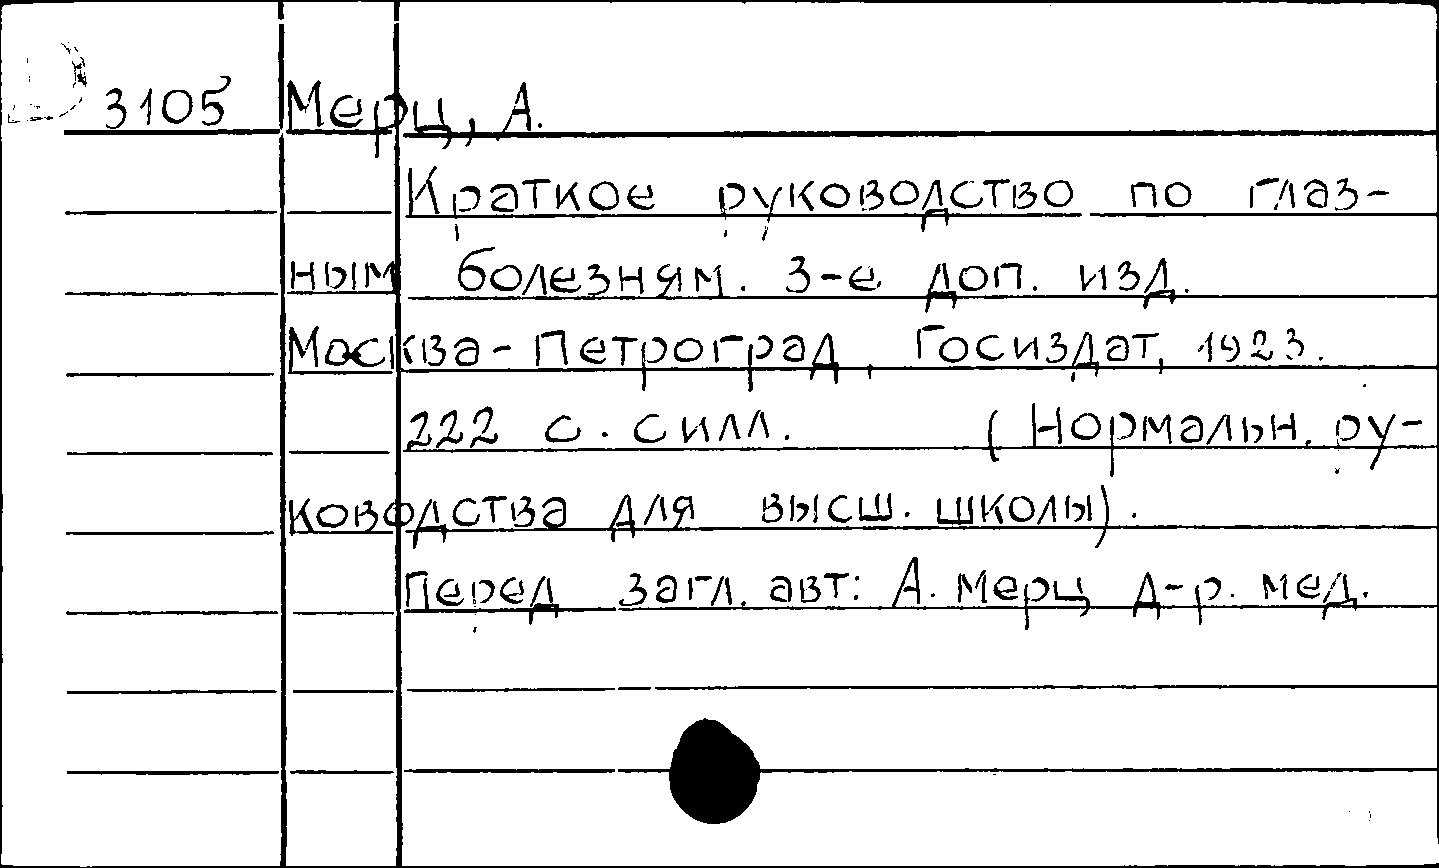 D 3105 Мерц, А.
Краткое руководство по глаз-
ным болезням. 3-е доп. изд.
Москва-Петроград, Госиздат, 1923.
222 с. с илл. (Нормальн. ру-
ководства для высш. школы).
Перед загл. авт: А. Мерц д-р. мед.